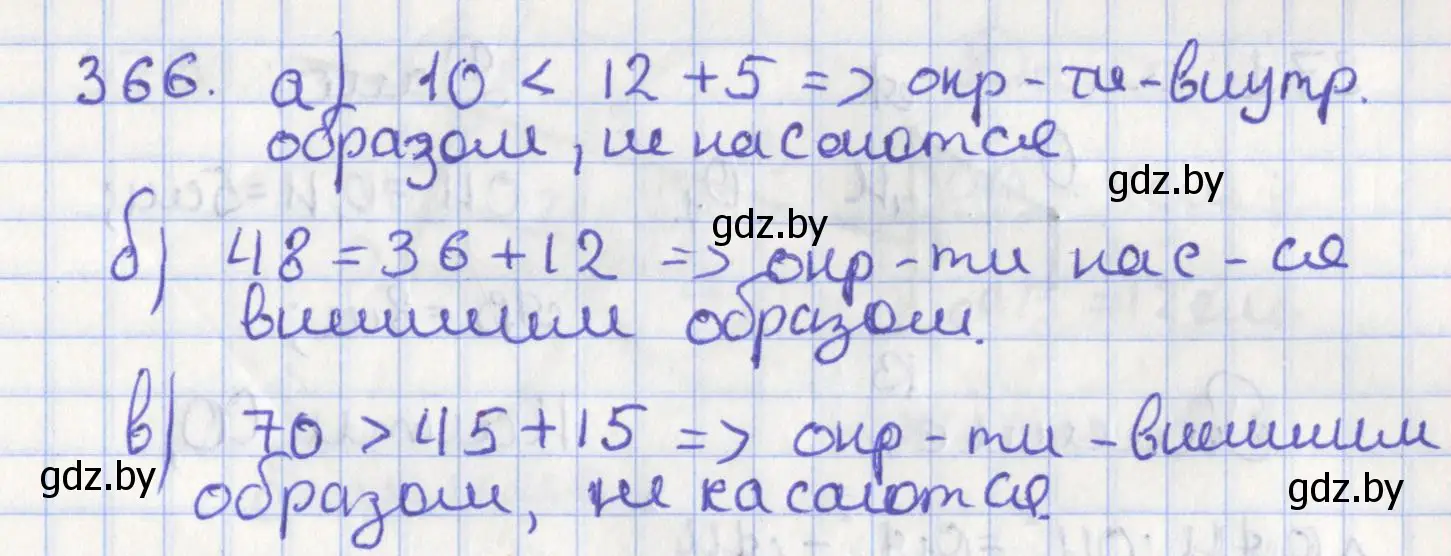 366. а) 10 < 12 + 5 => окр-ти-внутр.
образом, не касаются
gdz.by
gdz.by
б) 48 = 36 + 12 => окр-ти кас-ся
внешним образом.
в) 70 > 45 + 15 => окр-ти - внешним
gdz.by
gdz.by
образом, не касаются.